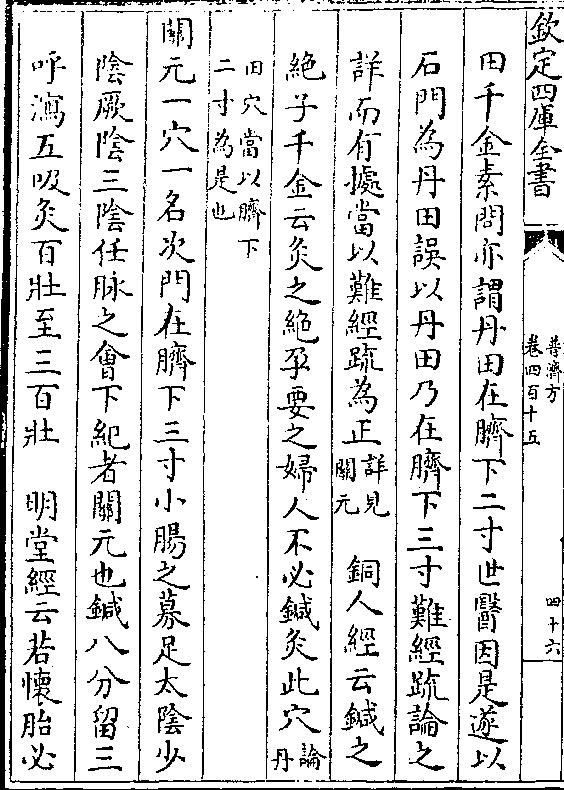 欽定四庫全書
普濟方
卷四百十五
四十六
田千金素問亦謂丹田在臍下二寸世醫因是遂以
石門為丹田誤以丹田乃在臍下三寸難經疏論之
詳而有據當以難經疏為正
詳見
關元
銅人經云鍼之
絶子千金云灸之絶孕要之婦人不必鍼灸此穴
論丹
田穴當以臍下
二寸為是也
關元一穴一名次門在臍下三寸小腸之募足太陰少
陰厥陰三陰任脉之會下紀者關元也鍼八分留三
呼瀉五吸灸百壯至三百壯　明堂經云若懐胎必